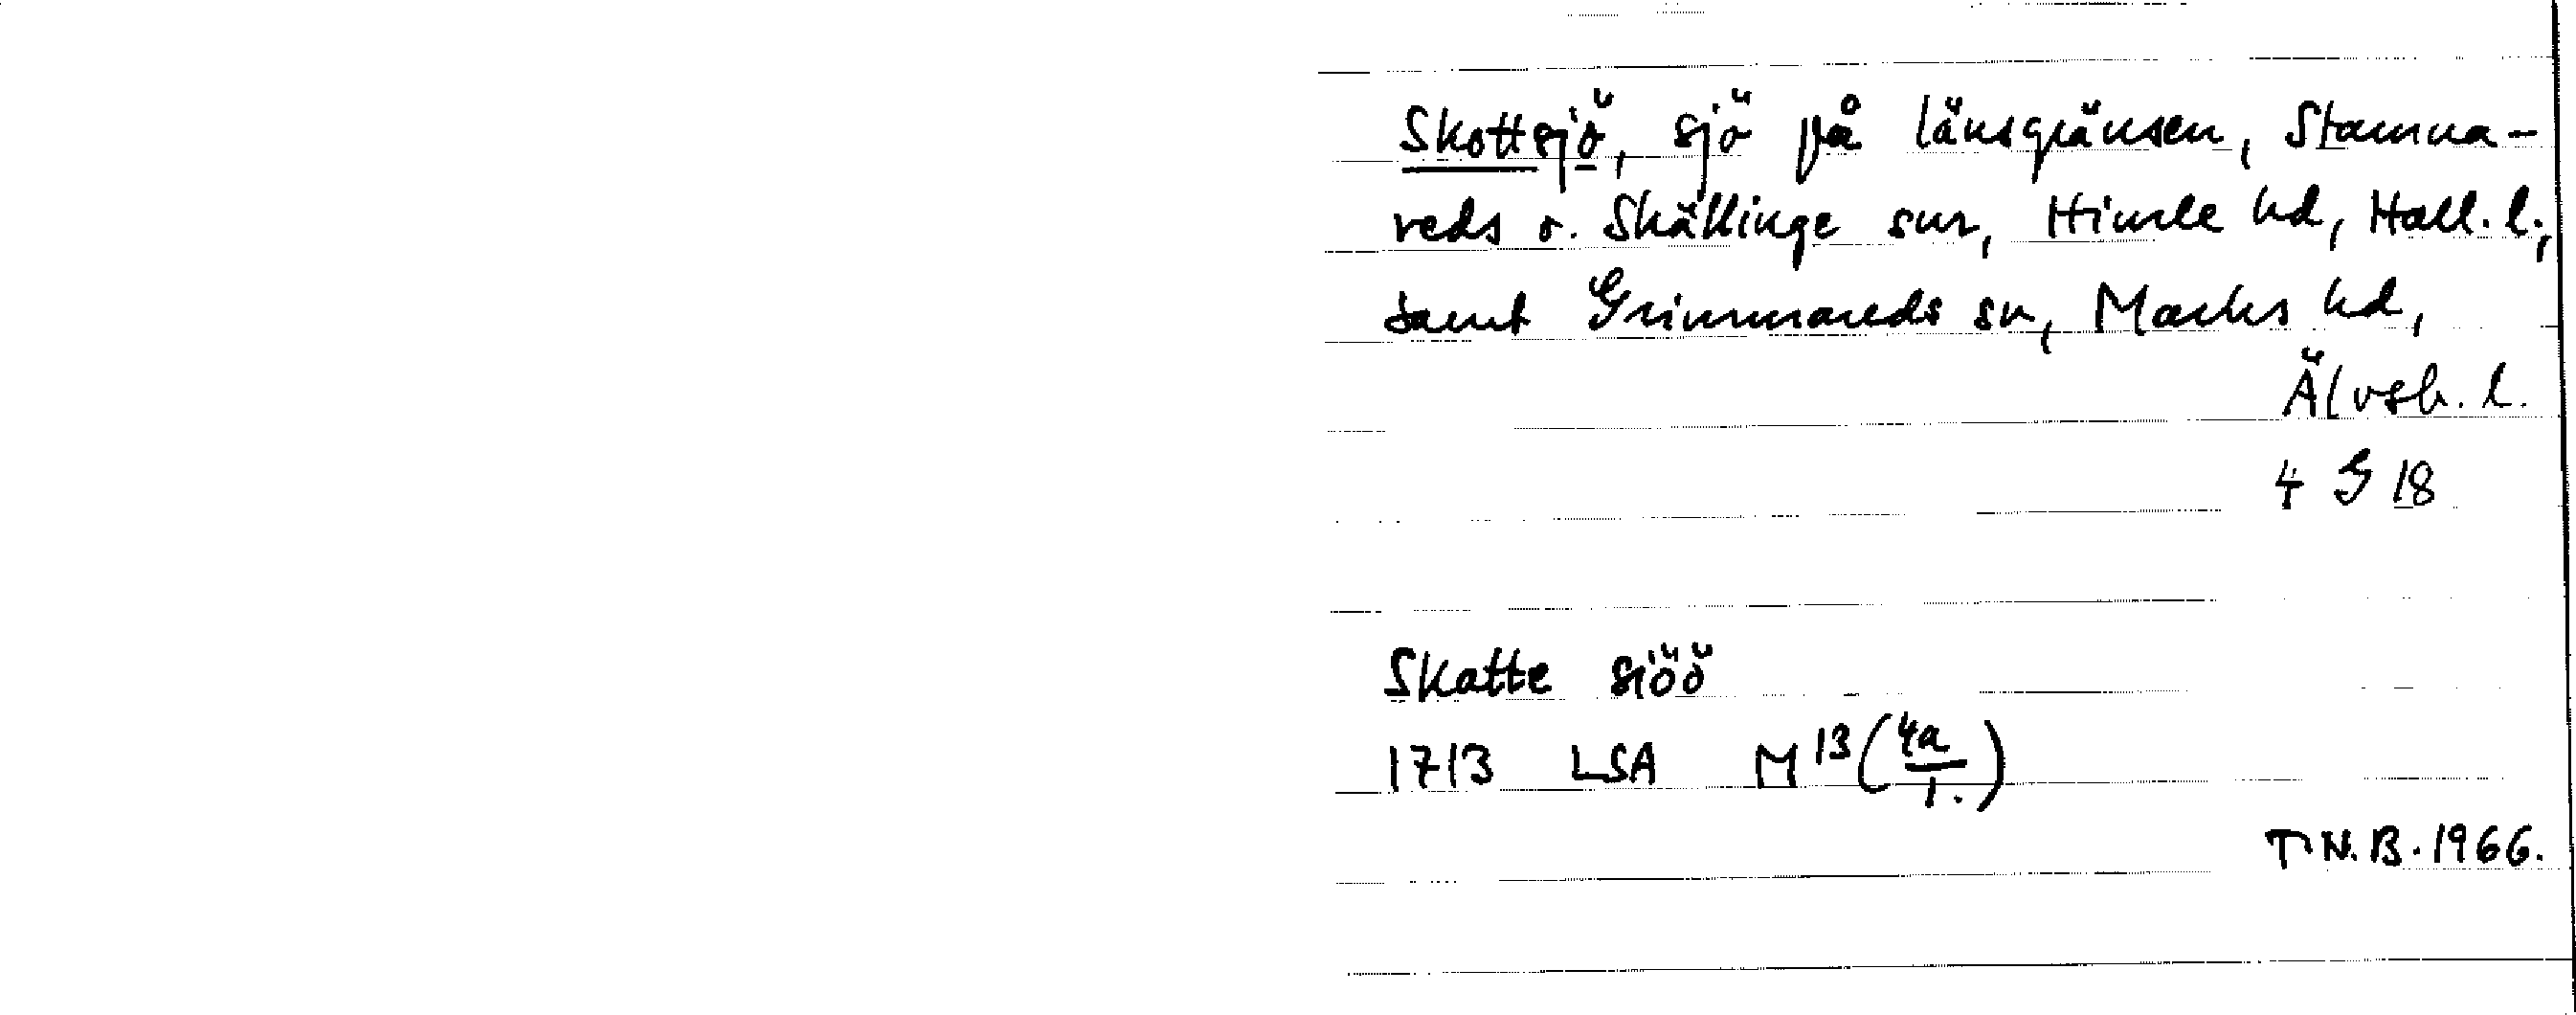 Skottsjö, sjö på länsgränsen, Stamna-
reds o. Skällinge snr, Himle hd, Hall. l.,
samt Grimmareds sn, Marks hd,
Älvsb. l.
4 G 18
Skatte siöö
1713 LSA M 13 (4a/1.)
T.N.B. 1966.